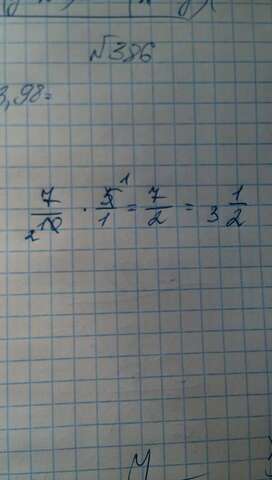 №386
3,98=
7/10 2 · 5/1 1 = 7/2 = 3 1/2